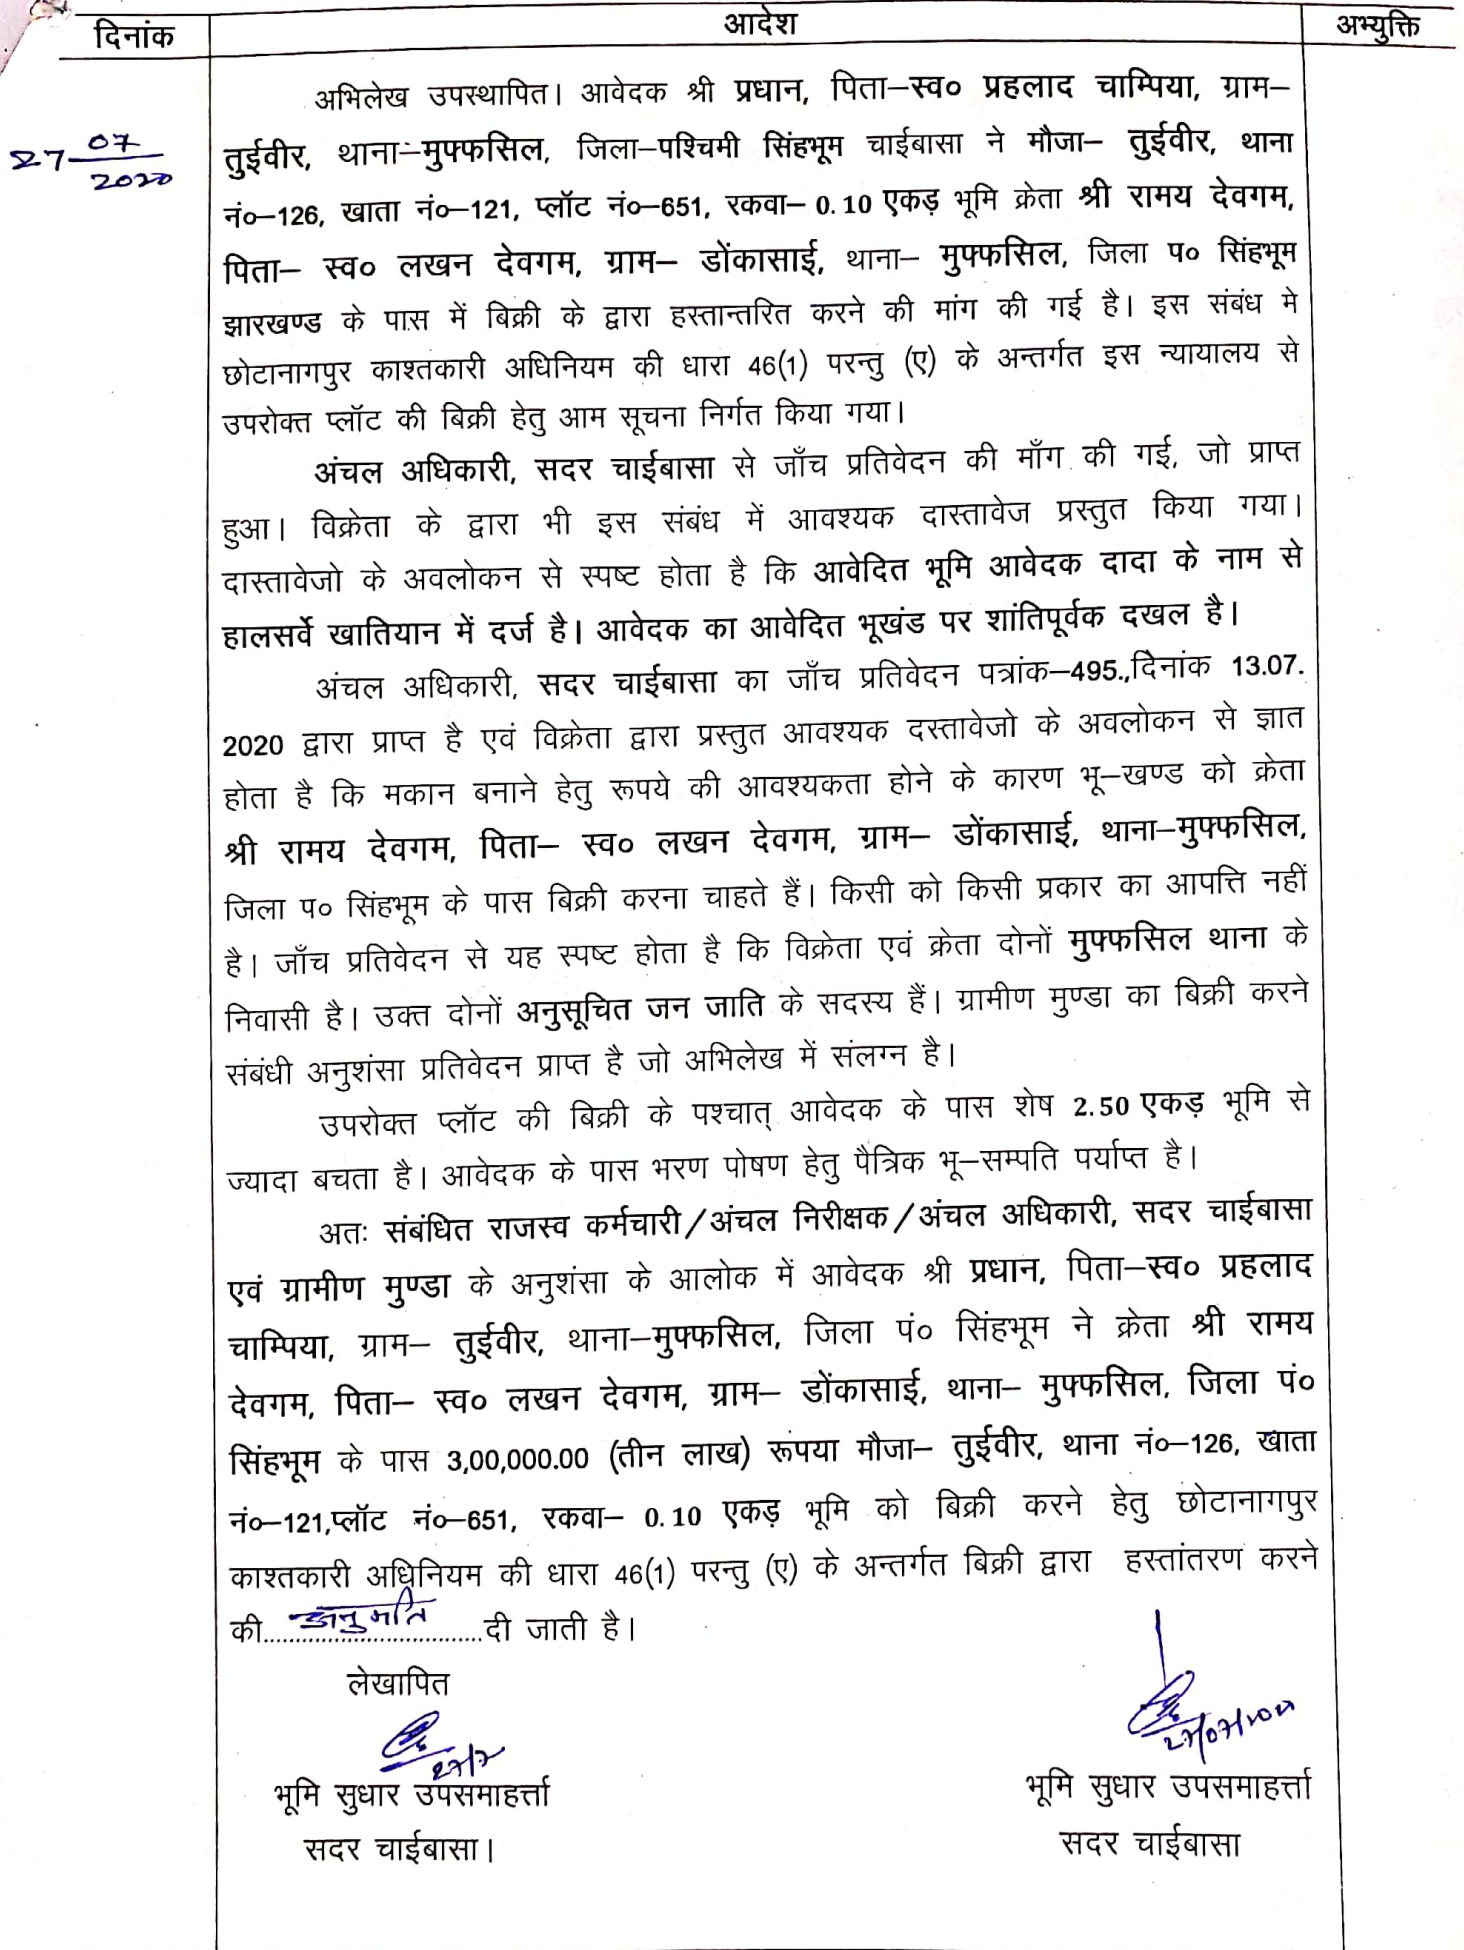 दिनांक आदेश अभ्युक्ति
अभिलेख उपस्थापित। आवेदक श्री प्रधान, पिता–स्व० प्रहलाद चाम्पिया, ग्राम–
27 07/2020
तुईवीर, थाना–मुफ्फसिल, जिला–पश्चिमी सिंहभूम चाईबासा ने मौजा– तुईवीर, थाना
नं०–126, खाता नं०–121, प्लॉट नं०–651, रकवा– 0.10 एकड़ भूमि क्रेता श्री रामय देवगम,
पिता– स्व० लखन देवगम, ग्राम– डोंकासाई, थाना– मुफ्फसिल, जिला प० सिंहभूम
झारखण्ड के पास में बिक्री के द्वारा हस्तान्तरित करने की मांग की गई है। इस संबंध मे
छोटानागपुर काश्तकारी अधिनियम की धारा 46(1) परन्तु (ए) के अन्तर्गत इस न्यायालय से
उपरोक्त प्लॉट की बिक्री हेतु आम सूचना निर्गत किया गया।
अंचल अधिकारी, सदर चाईबासा से जाँच प्रतिवेदन की माँग की गई, जो प्राप्त
हुआ। विक्रेता के द्वारा भी इस संबंध में आवश्यक दास्तावेज प्रस्तुत किया गया।
दास्तावेजो के अवलोकन से स्पष्ट होता है कि आवेदित भूमि आवेदक दादा के नाम से
हालसर्वे खातियान में दर्ज है। आवेदक का आवेदित भूखंड पर शांतिपूर्वक दखल है।
अंचल अधिकारी, सदर चाईबासा का जाँच प्रतिवेदन पत्रांक–495.,दिनांक 13.07.
2020 द्वारा प्राप्त है एवं विक्रेता द्वारा प्रस्तुत आवश्यक दस्तावेजो के अवलोकन से ज्ञात
होता है कि मकान बनाने हेतु रूपये की आवश्यकता होने के कारण भू–खण्ड को क्रेता
श्री रामय देवगम, पिता– स्व० लखन देवगम, ग्राम– डोंकासाई, थाना–मुफ्फसिल,
जिला प० सिंहभूम के पास बिक्री करना चाहते हैं। किसी को किसी प्रकार का आपत्ति नहीं
है। जाँच प्रतिवेदन से यह स्पष्ट होता है कि विक्रेता एवं क्रेता दोनों मुफ्फसिल थाना के
निवासी है। उक्त दोनों अनुसूचित जन जाति के सदस्य हैं। ग्रामीण मुण्डा का बिक्री करने
संबंधी अनुशंसा प्रतिवेदन प्राप्त है जो अभिलेख में संलग्न है।
उपरोक्त प्लॉट की बिक्री के पश्चात् आवेदक के पास शेष 2.50 एकड़ भूमि से
ज्यादा बचता है। आवेदक के पास भरण पोषण हेतु पैत्रिक भू–सम्पति पर्याप्त है।
अतः संबंधित राजस्व कर्मचारी/अंचल निरीक्षक/अंचल अधिकारी, सदर चाईबासा
एवं ग्रामीण मुण्डा के अनुशंसा के आलोक में आवेदक श्री प्रधान, पिता–स्व० प्रहलाद
चाम्पिया, ग्राम– तुईवीर, थाना–मुफ्फसिल, जिला पं० सिंहभूम ने क्रेता श्री रामय
देवगम, पिता– स्व० लखन देवगम, ग्राम– डोंकासाई, थाना– मुफ्फसिल, जिला पं०
सिंहभूम के पास 3,00,000.00 (तीन लाख) रूपया मौजा– तुईवीर, थाना नं०–126, खाता
नं०–121,प्लॉट नं०–651, रकवा– 0.10 एकड़ भूमि को बिक्री करने हेतु छोटानागपुर
काश्तकारी अधिनियम की धारा 46(1) परन्तु (ए) के अन्तर्गत बिक्री द्वारा हस्तांतरण करने
की....अनुमति....दी जाती है।
लेखापित
27/7 27/07/2020
भूमि सुधार उपसमाहर्त्ता भूमि सुधार उपसमाहर्त्ता
सदर चाईबासा। सदर चाईबासा